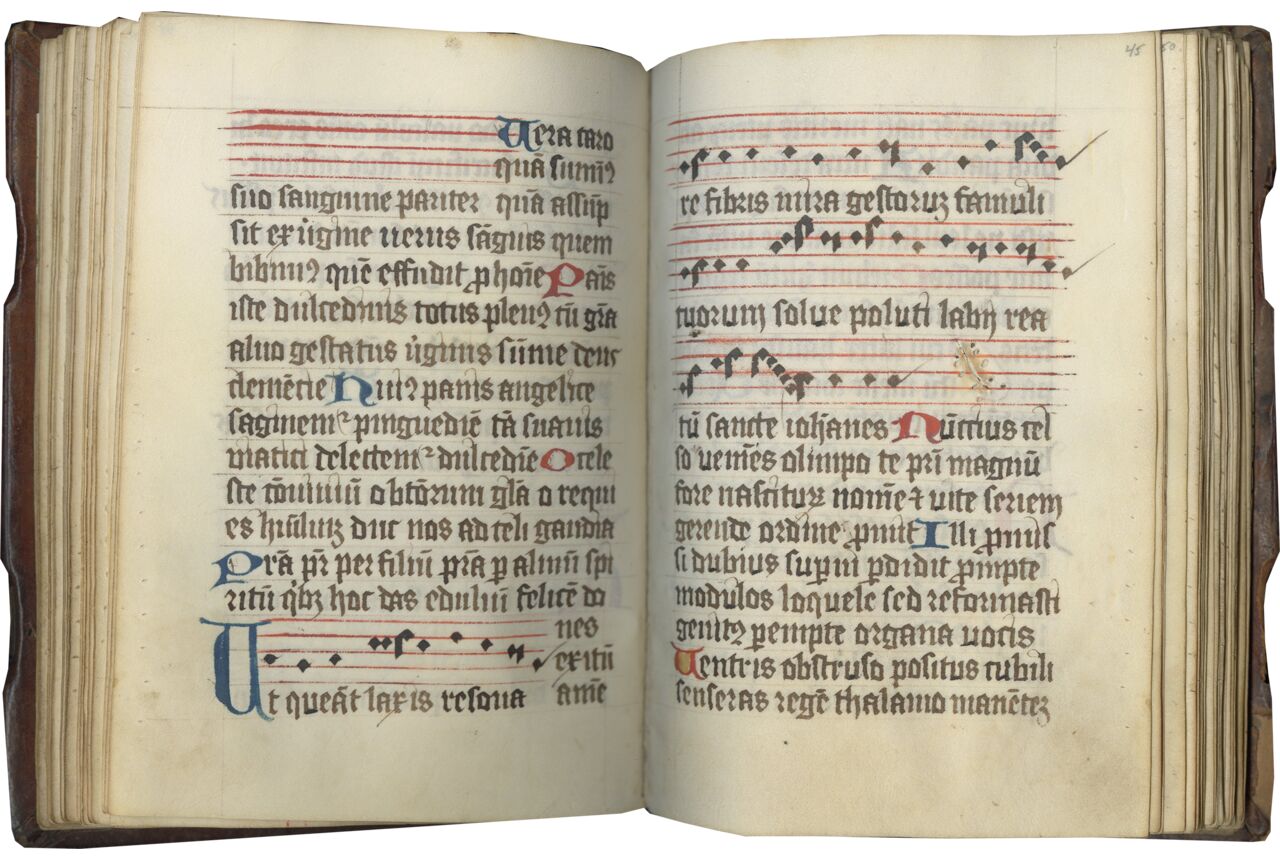 Uera caro
quā sumim9
suo sanguine pariter quā assūp
sit ex uigine uerus sāguis quem
bibim9 quē effudit p hoīe Panis
iste dulcedinis totus plen9 tū gr̄a
aluo gestatus uigīnis sūme deus
clemētie Hui9 panis angelice
saginemr pinguedīe tā suauis
uiatici delectemr dulcedīe O cele
ste cōuiuiū o btōrum gl̄a o requi
es huīliuz duc nos ad celi gaudia
Pr̄a pr̄ per filiū pr̄a p almū spi
ritū qbz hoc das eduliū felicē do
nes
exitū
amē
Ut queāt laxis resona
45 50
re fibris mira gestoruz famuli
tuorum solue poluti labij rea
tū sancte iohanes Nūctius cel
so uenies olimpo te prī magnū
fore nasciturz nomē & uite seriem
gerende ordine pmit Illi pmis
si dubius supni pdidit pmpte
modulos loquele sed reformasti
genit9 pempte organa uocis
Uentris obstruso positus cubili
senseras regē thalamo manētez